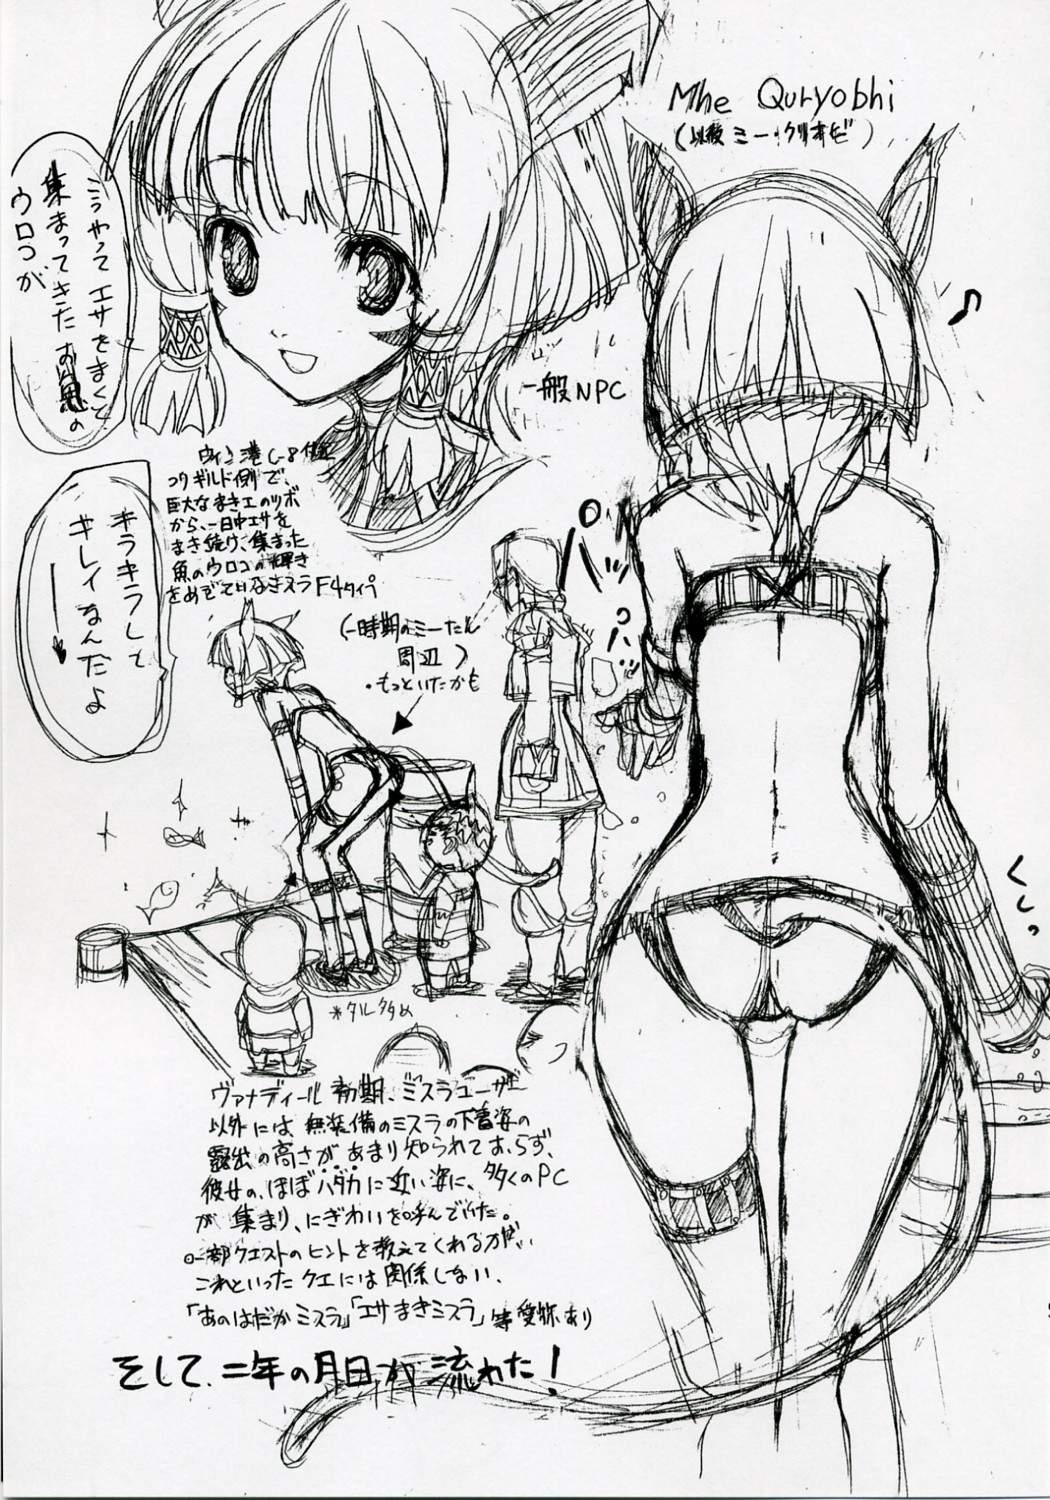 Mhe Quryobhi
(以後 ミー・クリオビ)
こうやって エサをまくと
集まってきた お魚の
ウロコが
一般NPC
ウィン港 C-8 付近
コウギルド側で、
巨大なまきエのツボ
から、一日中エサを
まき続け、集まった
魚のウロコの輝き
をめでている
F4タイプ
キラキラして
キレイなんだよ
(一時期のミーたん
周辺)
・もっといたかも
パッ
ハッ
くしっ
♪
*タル多め
ヴァナディール 初期、ミスラユーザー
以外には 無装備のミスラの下着姿の
露出の高さが あまり知られておらず、
彼女の、ほぼハダカに近い姿に、多くのPC
が 集まり、にぎわいを呼んでいた。
一部クエストのヒントを教えてくれる方だが
これといったクエには関係しない。
「あのはだかミスラ」「エサまきミスラ」等 愛称あり
そして、二年の月日が 流れた!